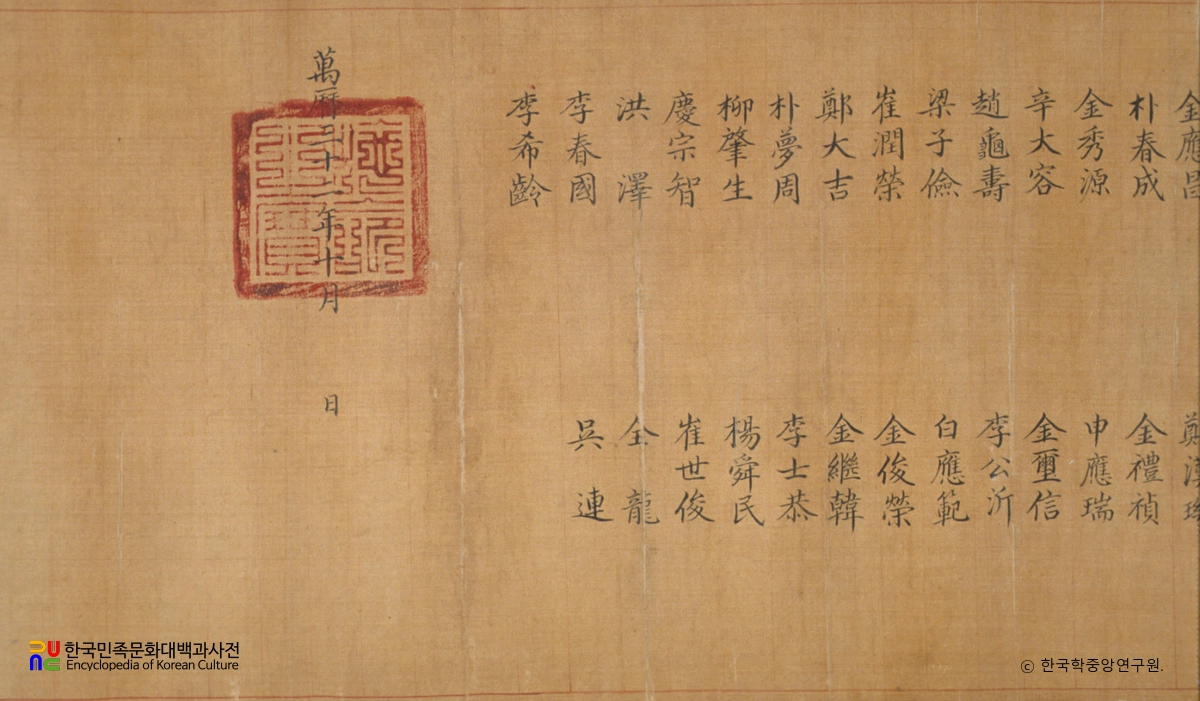 金應昌
鄭
朴春成
金禮禎
金秀源
申應瑞
辛大容
金璽信
趙龜壽
李公沂
梁子儉
白應範
崔潤榮
金俊榮
鄭大吉
金繼韓
朴夢周
李士恭
柳肇生
楊舜民
慶宗智
崔世俊
洪 澤
全 龍
李春國
吳 連
李希齡
萬曆三十二年十月 日
한국민족문화대백과사전
Encyclopedia of Korean Culture
© 한국학중앙연구원.